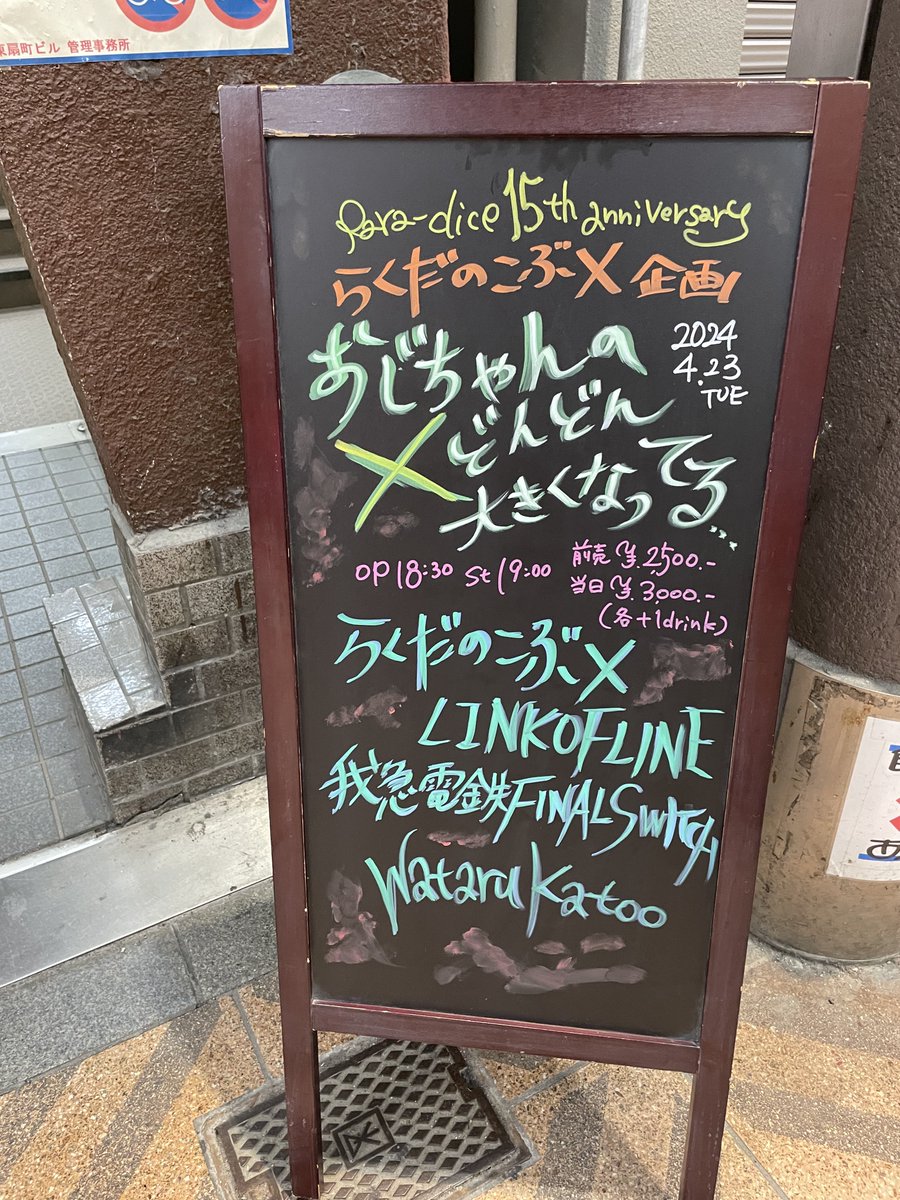 東扇町ビル 管理事務所
Para-dice 15th anniversary
らくだのこぶX 企画
おじちゃんの
X どんどん
大きくなってる...
2024
4.23
TUE
OP 18:30 St 19:00
前売 ¥.2,500.-
当日 ¥.3,000.-
(各+1drink)
らくだのこぶX
LINKOFLINE
我急電鉄FINALSwitch
Wataru Katoo